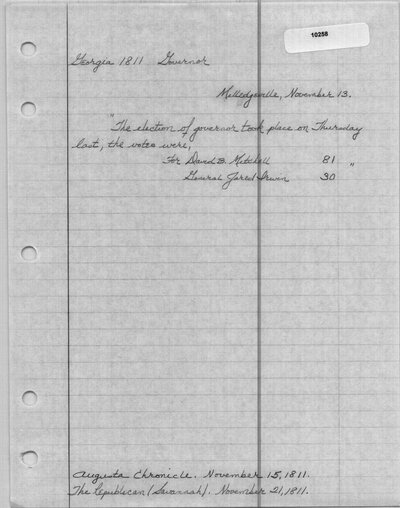 10258
Georgia 1811 Governor
Milledgeville, November 13.
"The election of governor took place on Thursday
last, the votes were,
For David B. Mitchell 81 "
General Jared Irwin 30
Augusta Chronicle. November 15, 1811.
The Republican (Savannah). November 21, 1811.